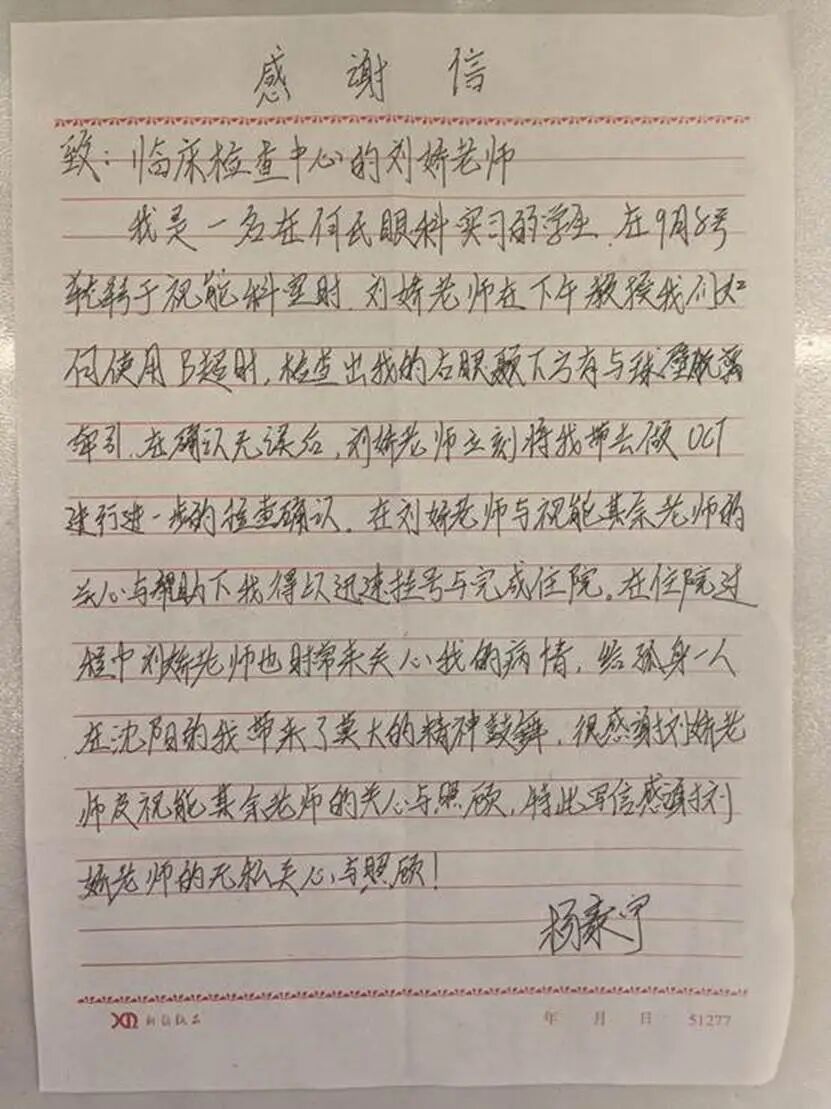 感谢信
致：临床检查中心的刘娇老师
我是一名在何氏眼科实习的学生，在9月8号
轮转于视能科室时，刘娇老师在下午教授我们如
何使用B超时，检查出我的右眼颞下方有与球壁脱离
牵引，在确认无误后，刘娇老师立刻将我带去做OCT
进行进一步的检查确认，在刘娇老师与视能其余老师的
关心与帮助下我得以迅速挂号与完成住院。在住院过
程中刘娇老师也时常来关心我的病情，给孤身一人
在沈阳的我带来了莫大的精神鼓舞，很感谢刘娇老
师及视能其余老师的关心与照顾，特此写信感谢刘
娇老师的无私关心与照顾！
杨
年 月 日 51277